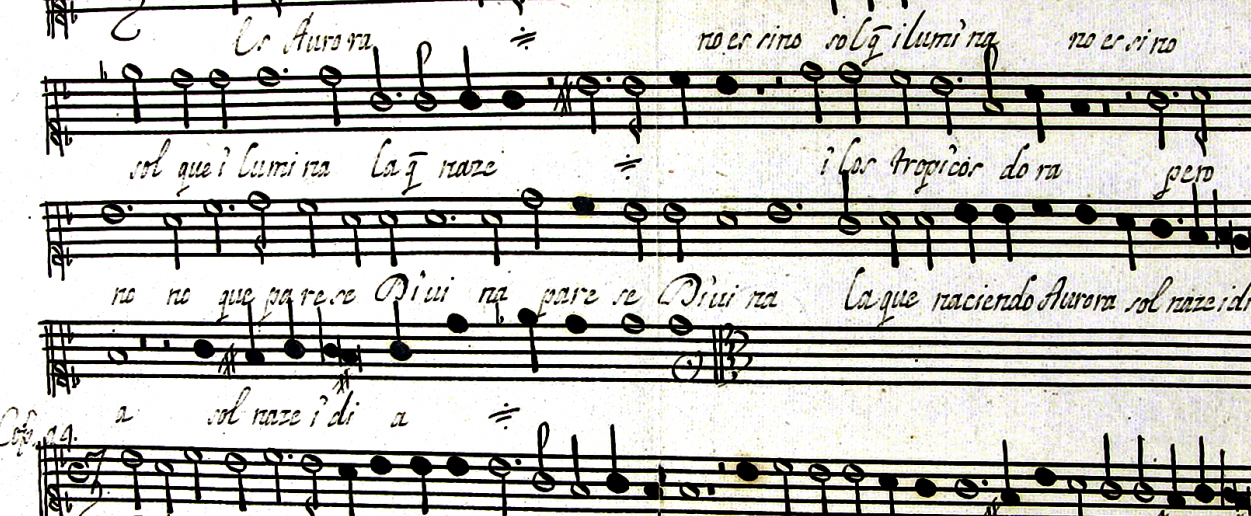 Es Aurora no es sino sol q̃ ilumina no es sino
sol que i lumina la q̃ naze i los tropicos dora pero
no no que parese Divina parese Divina la que naciendo Aurora sol naze i di
a sol naze i di a
a 4.